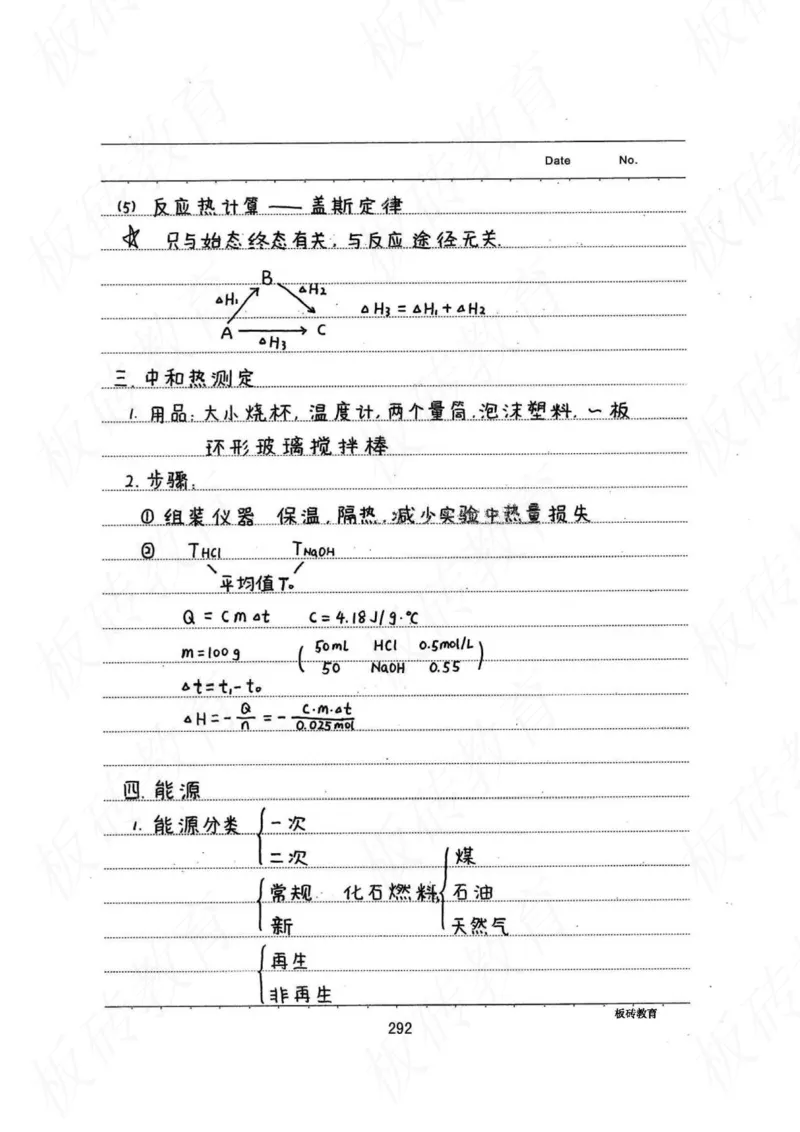 Date No.
(5) 反应热计算 —— 盖斯定律
☆ 只与始态终态有关,与反应途径无关.
B
△H₁ △H₂
△H₃ = △H₁ + △H₂
A → C
△H₃
三. 中和热测定
1. 用品:大小烧杯,温度计,两个量筒,泡沫塑料,一板
环形玻璃搅拌棒
2. 步骤:
① 组装仪器 保温,隔热,减少实验中热量损失
② THCl TNaOH
平均值T₀
Q = cm△t C = 4.18J/g·℃
m=100g ( 50mL HCl 0.5mol/L
50 NaOH 0.55 )
△t=t₁-t₀
△H=-Q/n=-C·m·△t/0.025mol
四. 能源
1. 能源分类 { 一次
二次
{ 常规 化石燃料 { 煤
石油
新 天然气
{ 再生
非再生
板砖教育
292